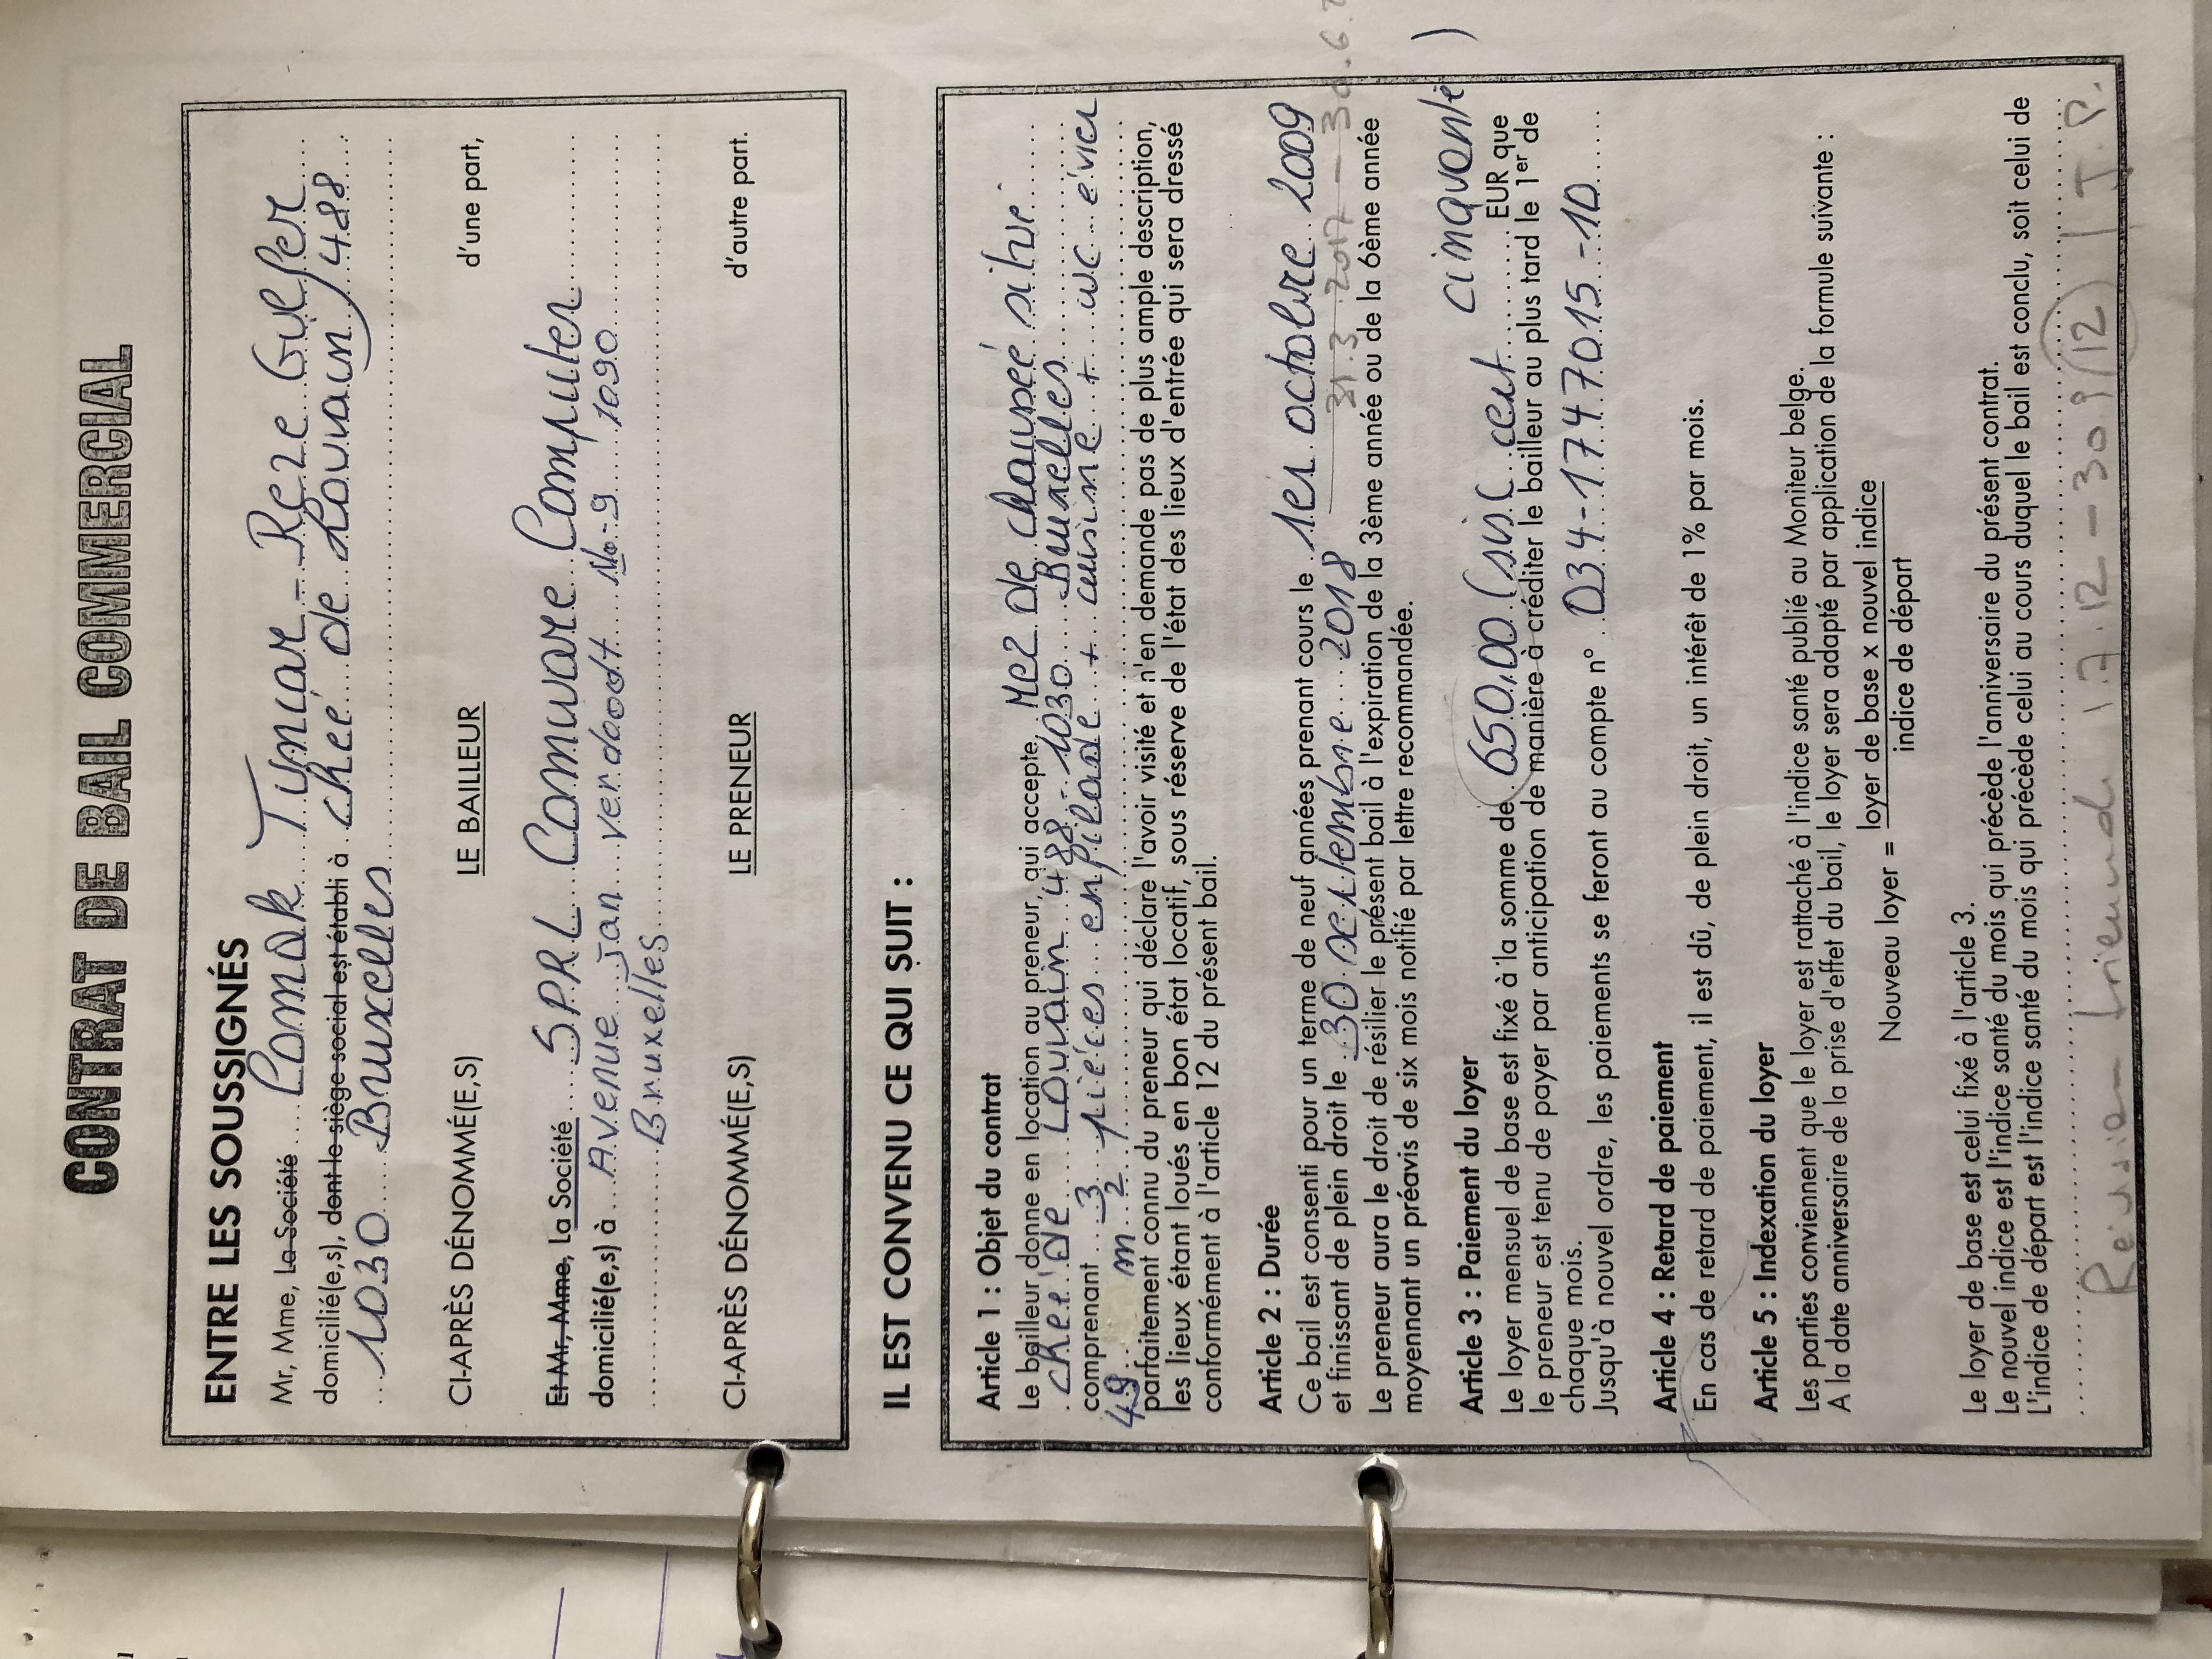 CONTRAT DE BAIL COMMERCIAL
ENTRE LES SOUSSIGNÉS
Mr, Mme, La Société Tumar - Reze
domicilié(e,s), dont le siège social est établi à cheé de Louvain 488
1030 Bruxelles
CI-APRÈS DÉNOMMÉ(E,S) LE BAILLEUR d'une part,
Et Mr, Mme, La Société S.P.R.L Comware Computer
domicilié(e,s) à Avenue Jan verdoodt No: 9 1090
Bruxelles
CI-APRÈS DÉNOMMÉ(E,S) LE PRENEUR d'autre part.
IL EST CONVENU CE QUI SUIT :
Article 1 : Objet du contrat
Le bailleur donne en location au preneur, qui accepte, Rez De chaussée situé
cheé De Louvain 488 - 1030 Bruxelles
comprenant 3 pièces enfilade + cuisine + WC évier
49 m2
parfaitement connu du preneur qui déclare l'avoir visité et n'en demande pas de plus ample description,
les lieux étant loués en bon état locatif, sous réserve de l'état des lieux d'entrée qui sera dressé
conformément à l'article 12 du présent bail.
Article 2 : Durée
Ce bail est consenti pour un terme de neuf années prenant cours le 1er octobre 2009
et finissant de plein droit le 30 septembre 2018 31.3 2017 - 30.6.
Le preneur aura le droit de résilier le présent bail à l'expiration de la 3ème année ou de la 6ème année
moyennant un préavis de six mois notifié par lettre recommandée.
Article 3 : Paiement du loyer
Le loyer mensuel de base est fixé à la somme de 650,00 (six cent cinquante) EUR que
le preneur est tenu de payer par anticipation de manière à créditer le bailleur au plus tard le 1er de
chaque mois.
Jusqu'à nouvel ordre, les paiements se feront au compte n° 034-1747015-10
Article 4 : Retard de paiement
En cas de retard de paiement, il est dû, de plein droit, un intérêt de 1% par mois.
Article 5 : Indexation du loyer
Les parties conviennent que le loyer est rattaché à l'indice santé publié au Moniteur belge.
A la date anniversaire de la prise d'effet du bail, le loyer sera adapté par application de la formule suivante :
Nouveau loyer = loyer de base x nouvel indice
indice de départ
Le loyer de base est celui fixé à l'article 3.
Le nouvel indice est l'indice santé du mois qui précède l'anniversaire du présent contrat.
L'indice de départ est l'indice santé du mois qui précède celui au cours duquel le bail est conclu, soit celui de
1.7.12 - 30.9/12 | J.P.